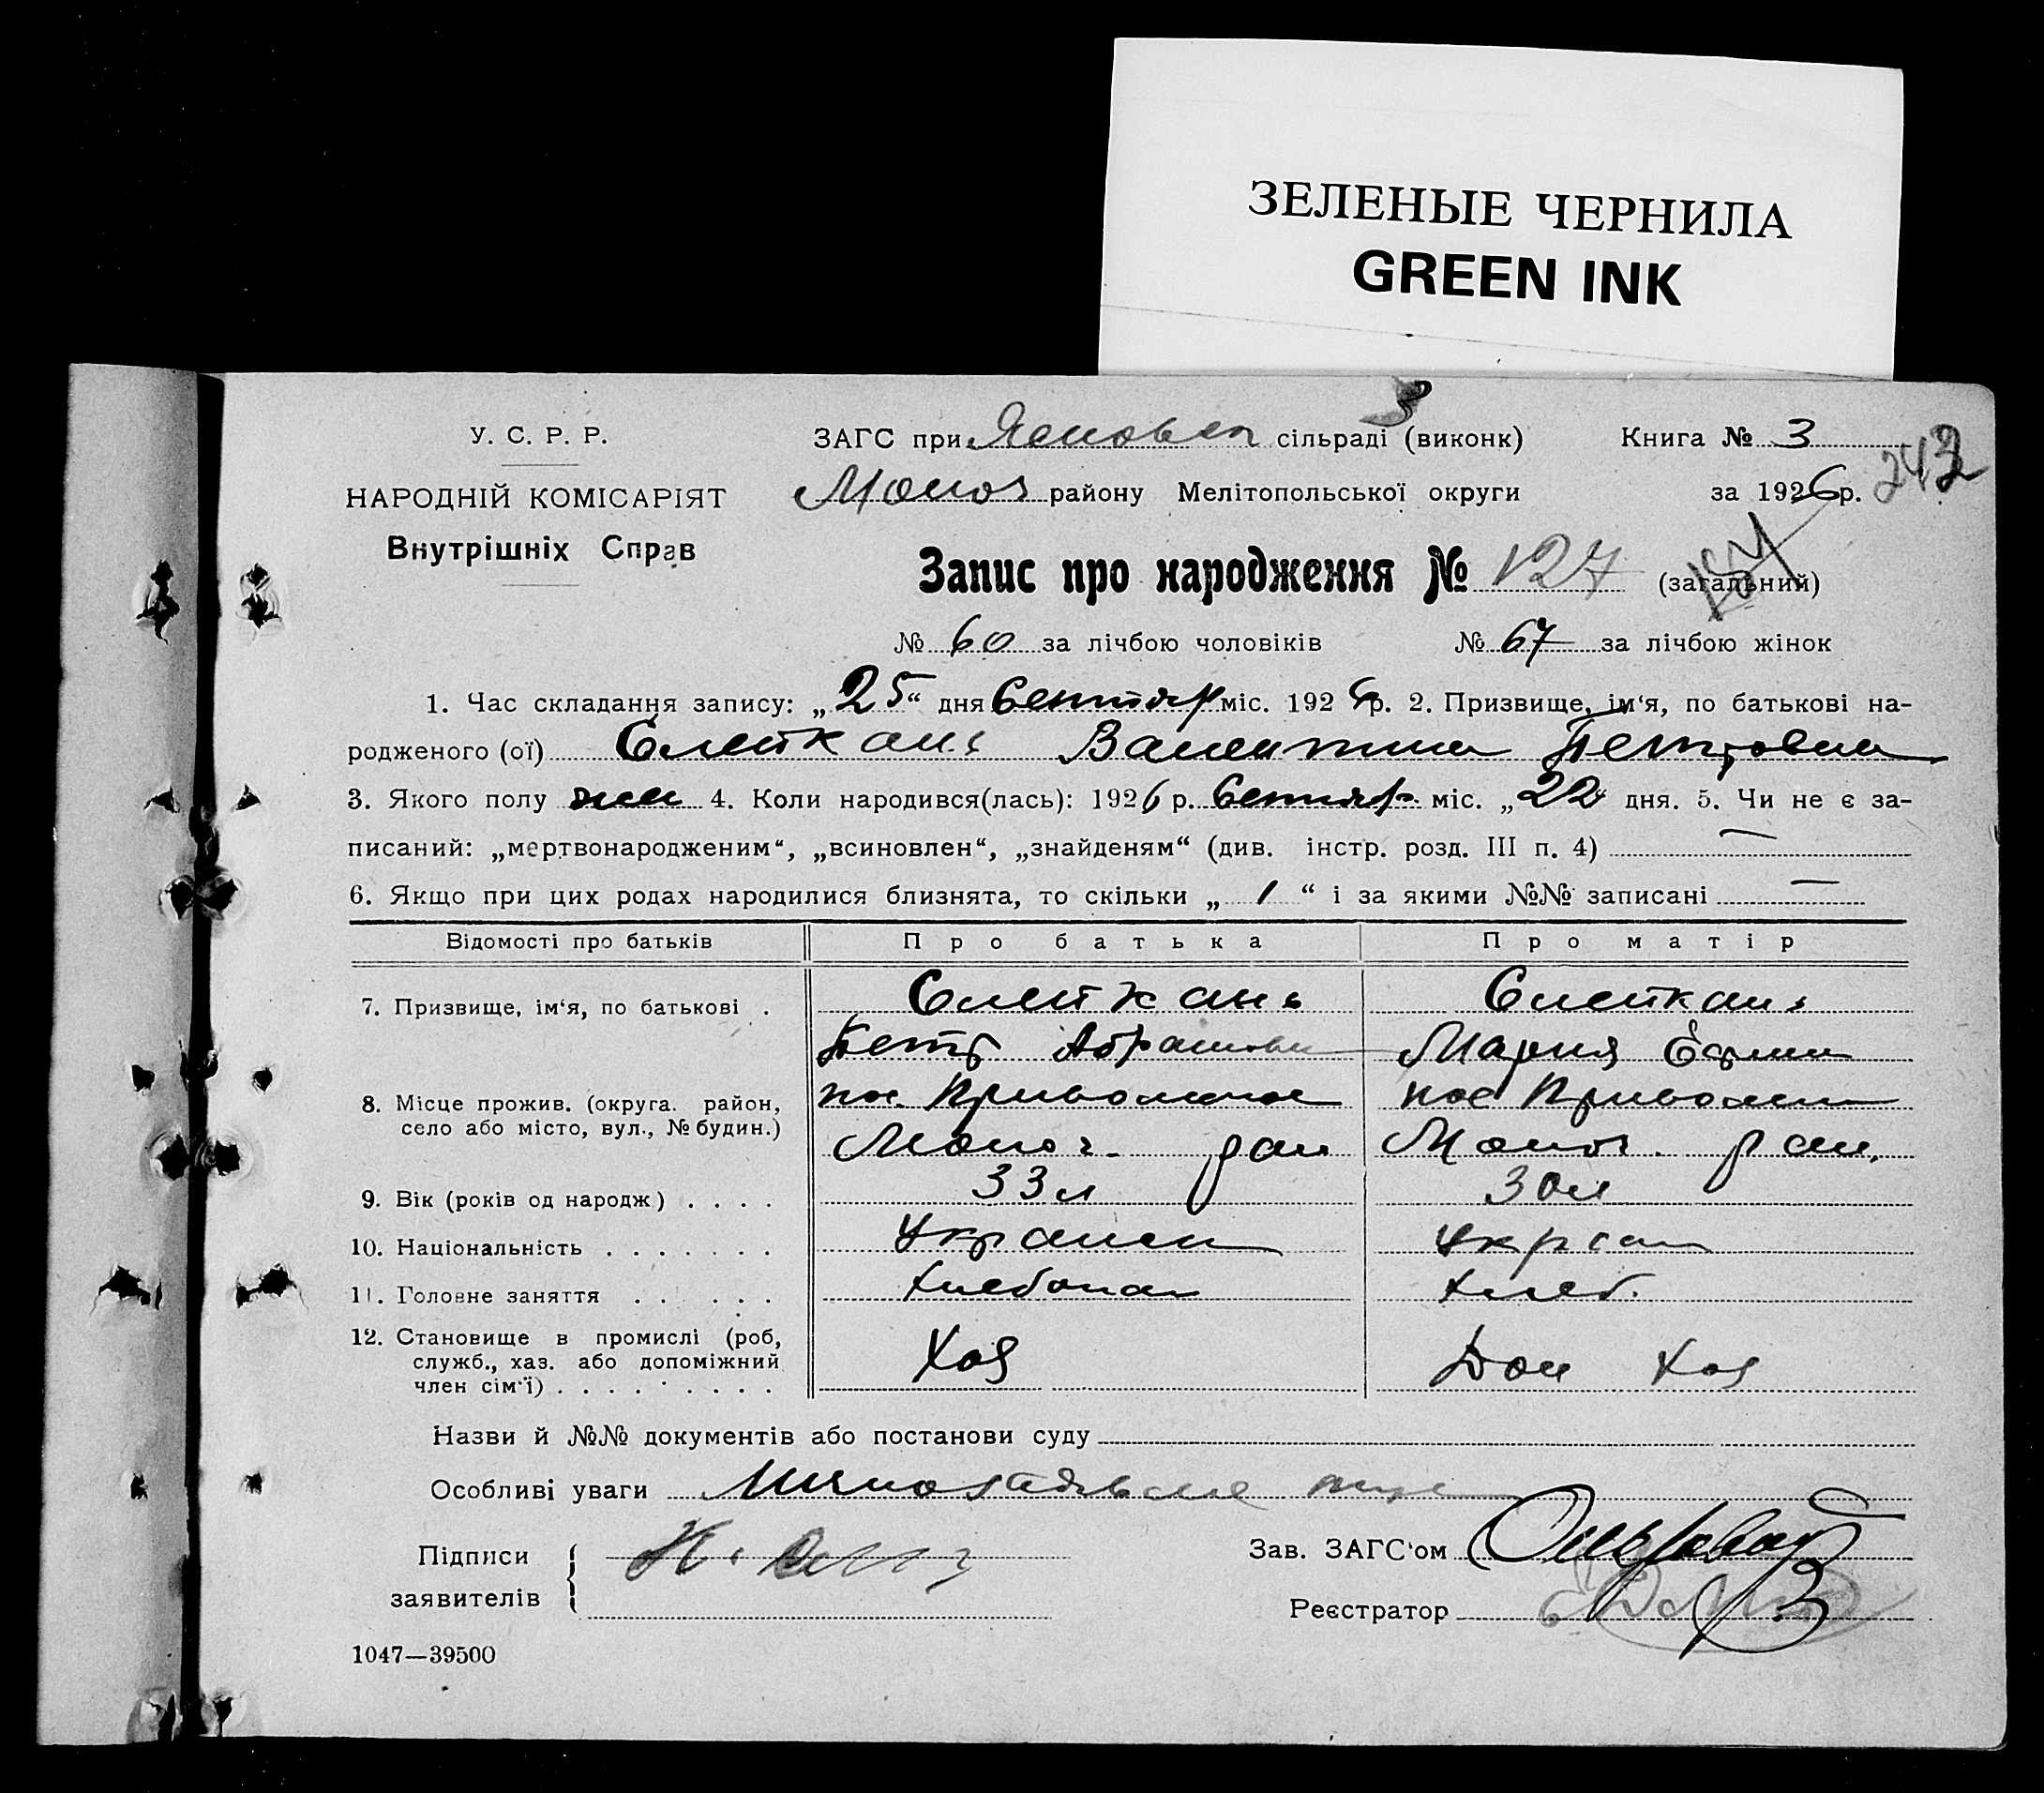 ЗЕЛЕНЫЕ ЧЕРНИЛА
GREEN INK
У. С. Р. Р.
НАРОДНІЙ КОМІСАРІЯТ
Внутрішніх Справ
ЗАГС при сільраді (виконк)
району Мелітопольської округи
Книга № 3
за 1926 р.
Запис про народження № 127 (загальний)
№ 60 за лічбою чоловіків № 67 за лічбою жінок
1. Час складання запису: „25“ дня Сентябр міс. 1926 р. 2. Призвище, ім‘я, по батькові на-
родженого (ої) Слепкань Валентина Петровна
3. Якого полу жен 4. Коли народився(лась): 1926 р. Сентябр міс. „22“ дня. 5. Чи не є за-
писаний: „мертвонародженим“, „всиновлен“, „знайденям“ (див. інстр. розд. III п. 4) —
6. Якщо при цих родах народилися близнята, то скільки „ 1 “ і за якими №№ записані —
Відомості про батьків Про батька Про матір
7. Призвище, ім‘я, по батькові . Слепкань Слепкань
Петр Абрамови Мария Ефим
8. Місце прожив. (округа. район, пос. Привольное пос Приволен
село або місто, вул., № будин.) рай рай.
9. Вік (років од народж) . . . . 33 л 30 л
10. Національність . . . . . . . Украин Укра
11. Головне заняття . . . . . . Хлебопаш Хлеб.
12. Становище в промислі (роб,
служб., хаз. або допоміжний Хоз Дом Хоз
член сім‘ї) . . . . . . . . .
Назви й №№ документів або постанови суду
Особливі уваги
Підписи
заявителів
Зав. ЗАГС‘ом
Реєстратор
1047—39500